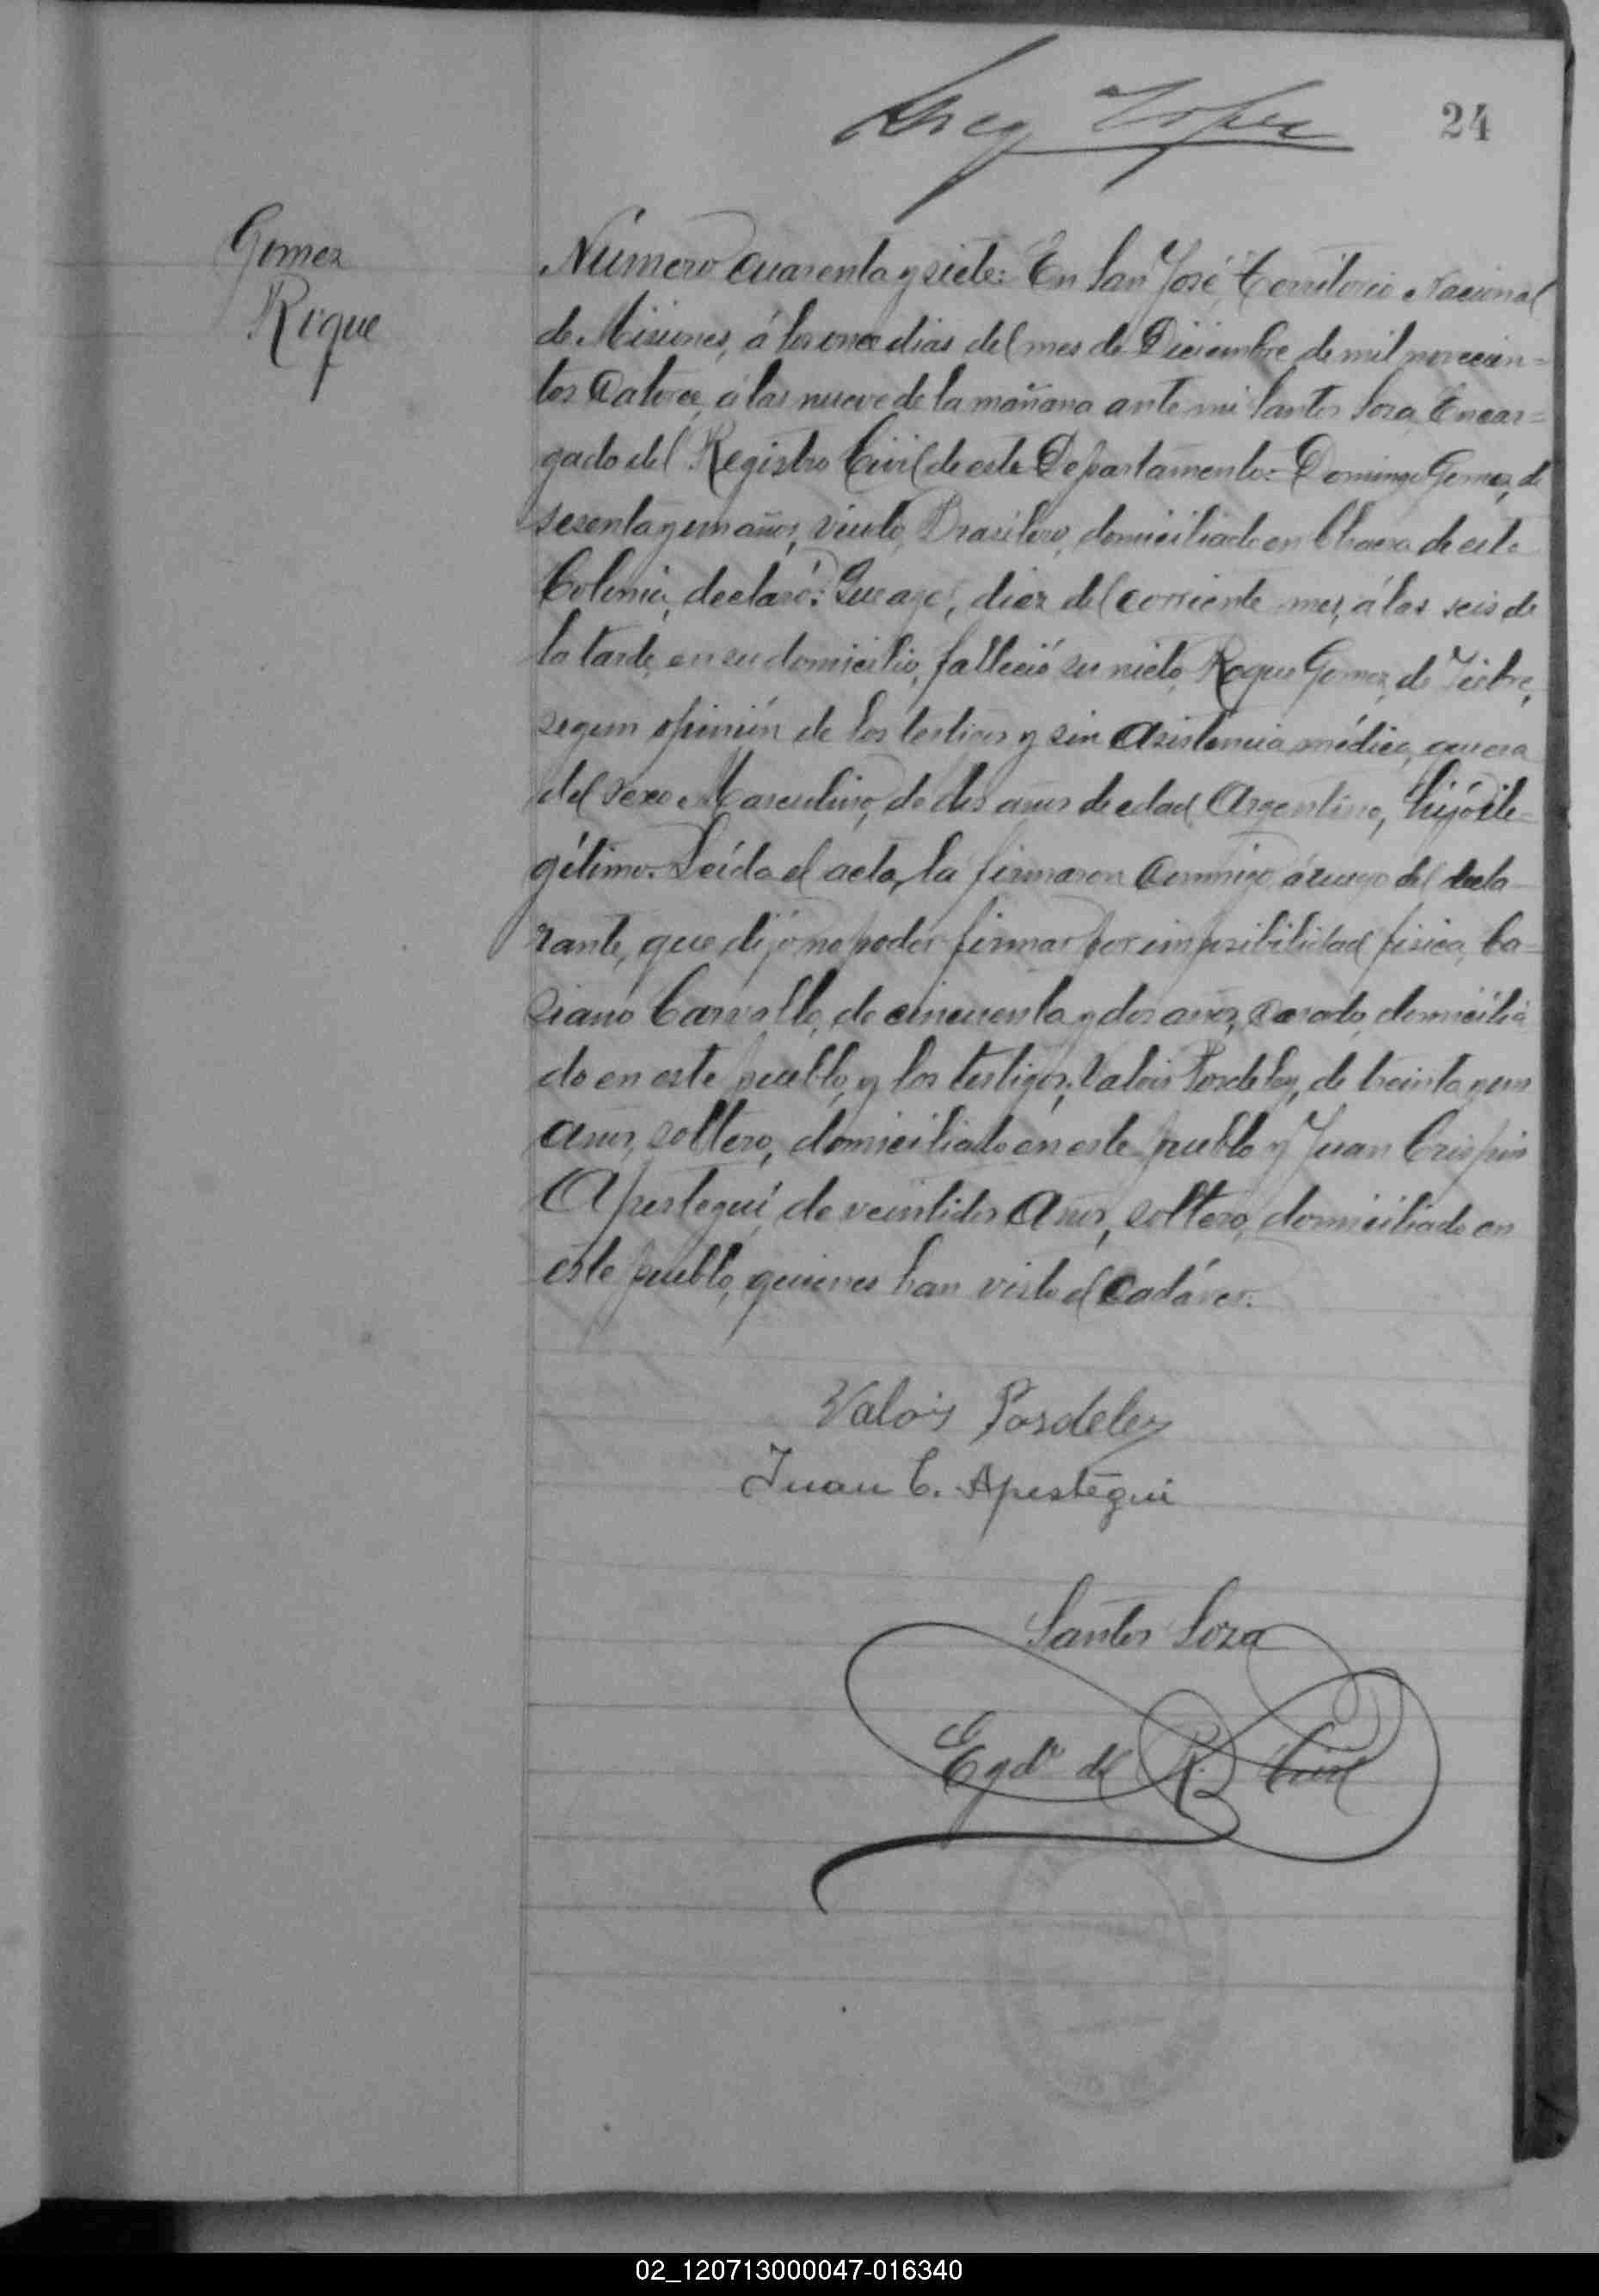 24
Gomez
Roque
Número cuarenta y siete: En San José, Territorio Nacional
de Misiones, á los once dias del mes de Diciembre de mil novecien=
tos Catorce, á las nueve de la mañana ante mi Santos Soza, Encar=
gado del Registro Civil de este Departamento: Domingo Gomez, de
sesenta y un años, viudo, Brasilero, domiciliado en Chacra de esta
Colonia, declaró: Que ayer, diez del corriente mes, á las seis de
la tarde, en su domicilio, falleció su nieto, Roque Gomez, de Fiebre,
segun opinión de los testigos y sin Asistencia médica, que era
del sexo Masculino, de dos años de edad, Argentino, hijo ile=
gitimo. Leída el acta, la firmaron Conmigo, á ruego del decla-
rante, que dijo no poder firmar por imposibilidad fisica, Ca=
siano Carvallo, de cincuenta y dos años, Casado, domicilia
do en este pueblo, y los testigos; Valois Posdeley, de treinta y un
años, soltero, domiciliado en este pueblo y Juan Crispin
Apestegui, de veintidos Años, soltero, domiciliado en
este pueblo, quienes han visto el Cadáver.
Valois Posdeley
Juan C. Apestegui
Santos Soza
Egdo del R. Civil
02_120713000047-016340